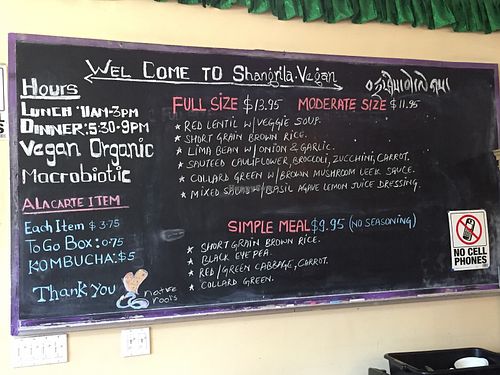 WELCOME TO Shangrila.Vegan
Hours
LUNCH 11AM-3PM
DINNER: 5:30-9PM
Vegan Organic
Macrobiotic
ALACARTE ITEM
Each Item $3.75
To Go Box: 0.75
KOMBUCHA: $5
Thank You
native roots
FULL SIZE $13.95 MODERATE SIZE $11.95
* RED LENTIL W/VEGGIE SOUP.
* SHORT GRAIN BROWN RICE.
* LIMA BEAN W/ONION & GARLIC.
* SAUTEED CAULIFLOWER, BROCCOLI, ZUCCHINI, CARROT.
* COLLARD GREEN W/BROWN MUSHROOM LEEK SAUCE.
* MIXED SALAD W/BASIL AGAVE LEMON JUICE DRESSING.
SIMPLE MEAL $9.95 (NO SEASONING)
* SHORT GRAIN BROWN RICE.
* BLACK EYE PEA.
* RED/GREEN CABBAGE, CARROT.
* COLLARD GREEN.
NO CELL
PHONES